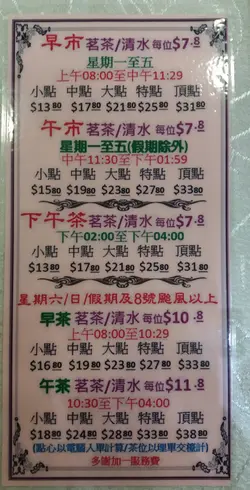 早市 茗茶/清水 每位$7.8
星期一至五
上午08:00至中午11:29
小點 中點 大點 特點 頂點
$13.80 $17.80 $21.80 $25.80 $31.80
午市 茗茶/清水 每位$7.8
星期一至五(假期除外)
中午11:30至下午01:59
小點 中點 大點 特點 頂點
$15.80 $19.80 $23.80 $27.80 $33.80
下午茶 茗茶/清水 每位$7.8
下午02:00至下午04:00
小點 中點 大點 特點 頂點
$13.80 $17.80 $21.80 $25.80 $31.80
星期六/日/假期及8號颱風以上
早茶 茗茶/清水 每位$10.8
上午08:00至10:29
小點 中點 大點 特點 頂點
$16.80 $19.80 $23.80 $28.80 $33.80
午茶 茗茶/清水 每位$11.8
10:30至下午04:00
小點 中點 大點 特點 頂點
$18.80 $24.80 $28.80 $33.80 $38.80
(點心以電腦入單計算/茶位以埋單交檯計)
多謝加一服務費